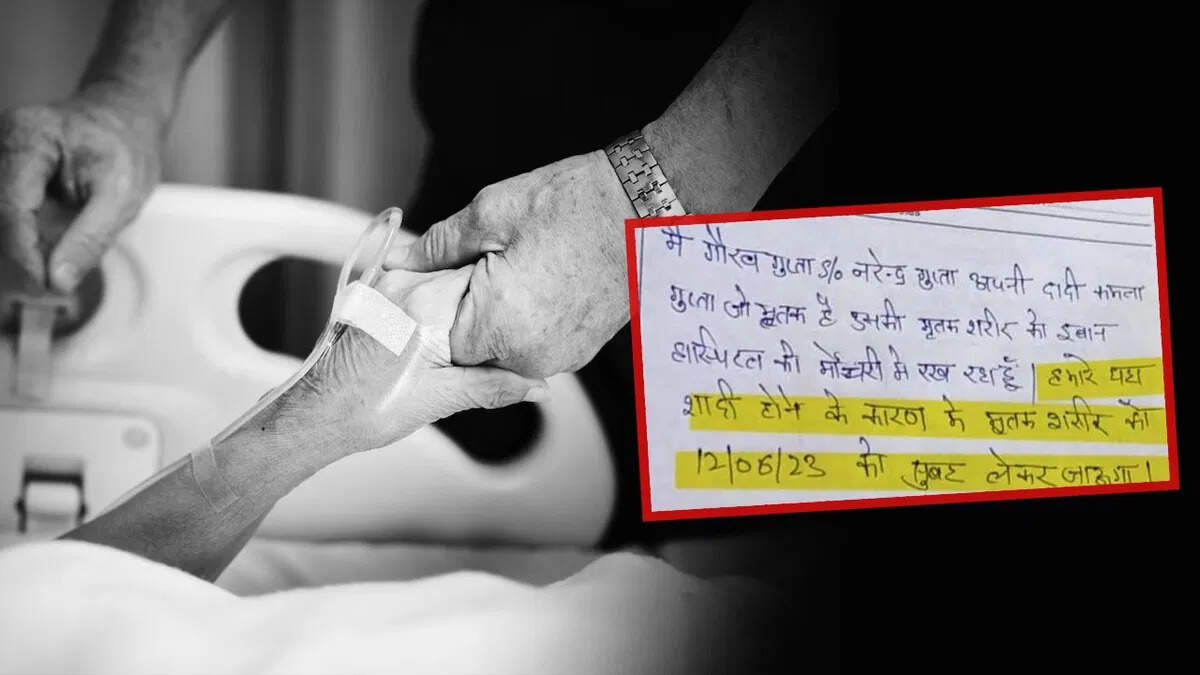 मैं गौरव गुप्ता S/o नरेन्द्र गुप्ता अपनी दादी कमला
गुप्ता जो मृतक है उसकी मृतक शरीर को इवान
हास्पिटल की मोर्चरी मे रख रहा हूँ। हमारे यहा
शादी होने के कारण के मृतक शरीर को
12/06/23 को सुबह लेकर जाऊगा।